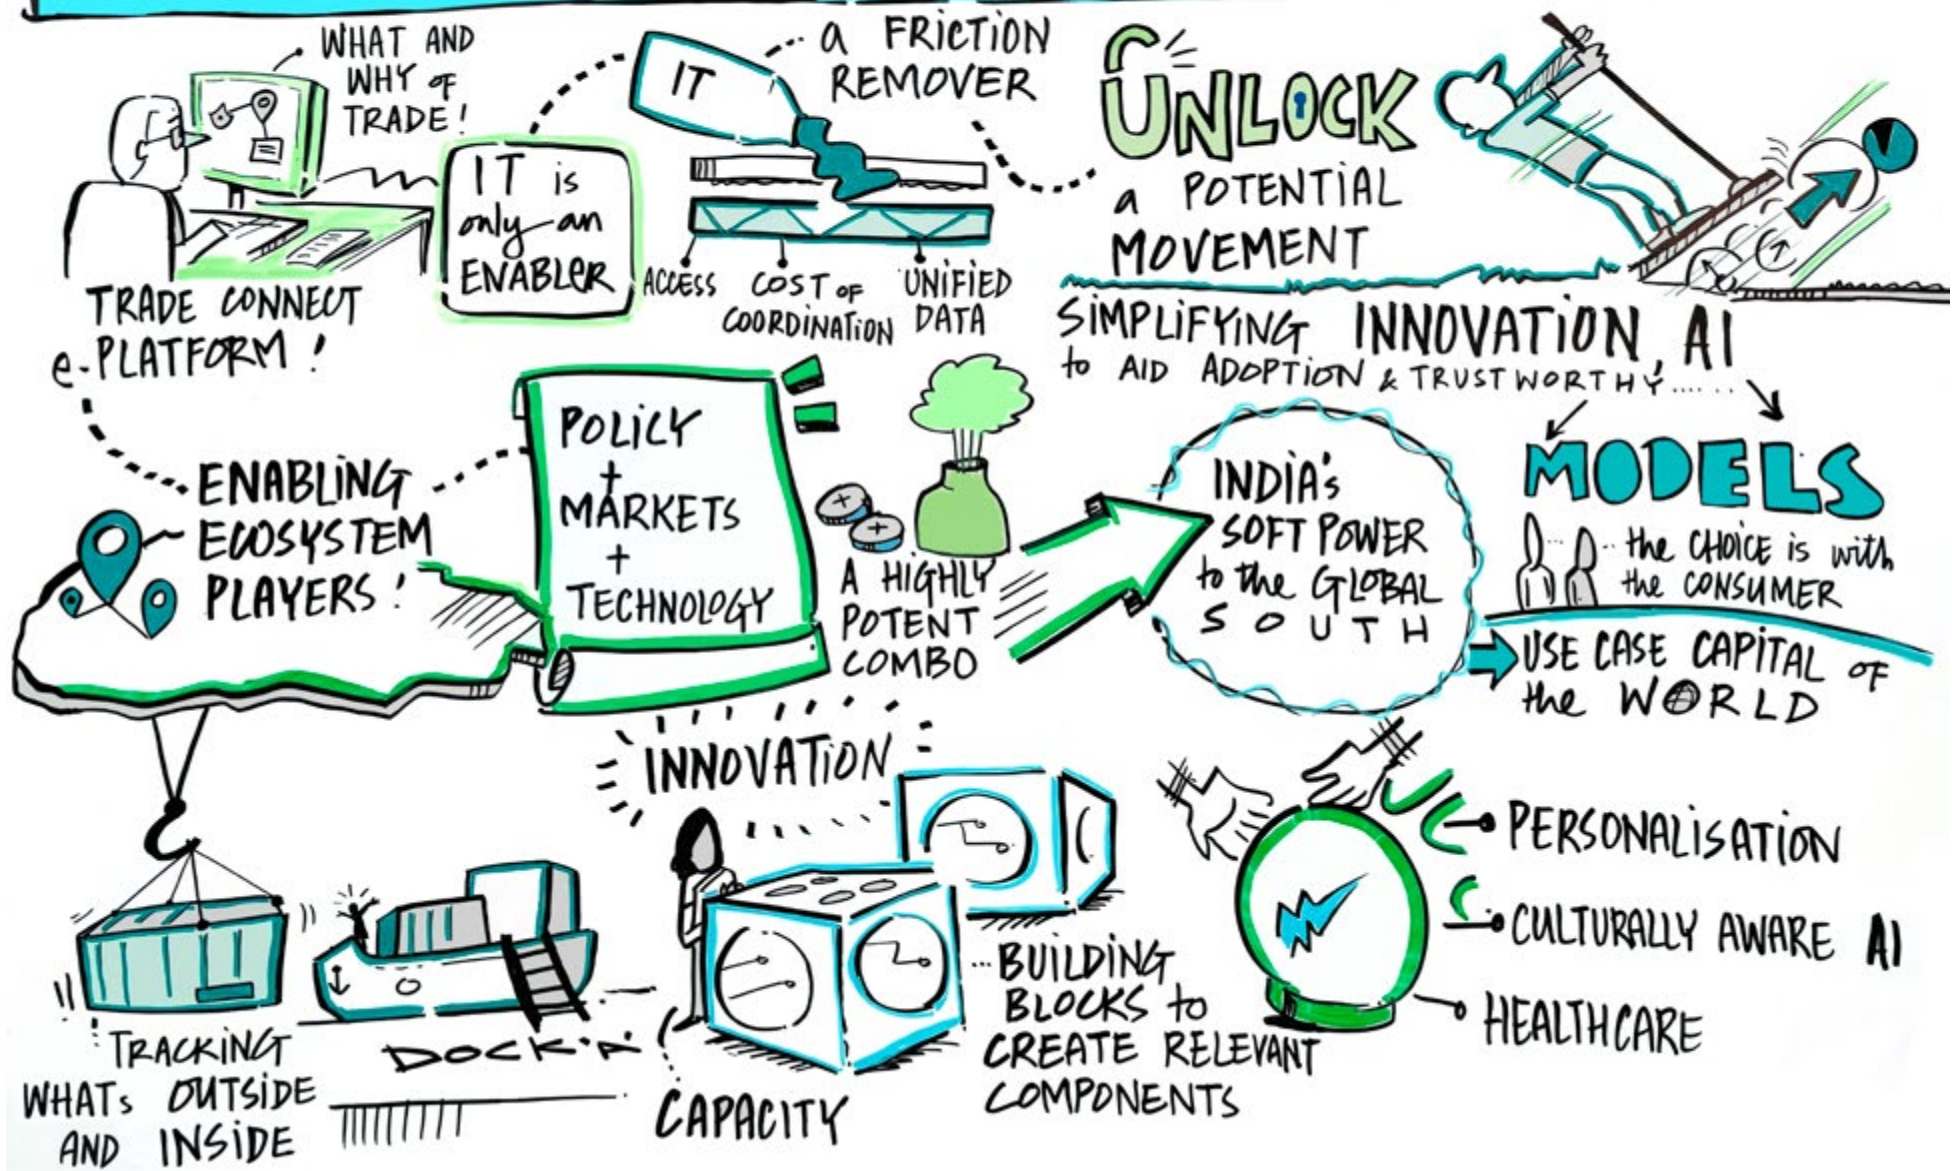 WHAT AND
WHY OF
TRADE!
TRADE CONNECT
e-PLATFORM!
IT is
only an
ENABLER
IT
a FRICTION
REMOVER
ACCESS
COST OF
COORDINATION
UNIFIED
DATA
UNLOCK
a POTENTIAL
MOVEMENT
SIMPLIFYING INNOVATION, AI
to AID ADOPTION & TRUSTWORTHY......
ENABLING
ECOSYSTEM
PLAYERS!
POLICY
+
MARKETS
+
TECHNOLOGY
A HIGHLY
POTENT
COMBO
INDIA's
SOFT POWER
to the GLOBAL
SOUTH
MODELS
the CHOICE is with
the CONSUMER
USE CASE CAPITAL OF
the WORLD
INNOVATION
TRACKING
WHATs OUTSIDE
AND INSIDE
CAPACITY
...BUILDING
BLOCKS to
CREATE RELEVANT
COMPONENTS
PERSONALISATION
CULTURALLY AWARE AI
HEALTHCARE